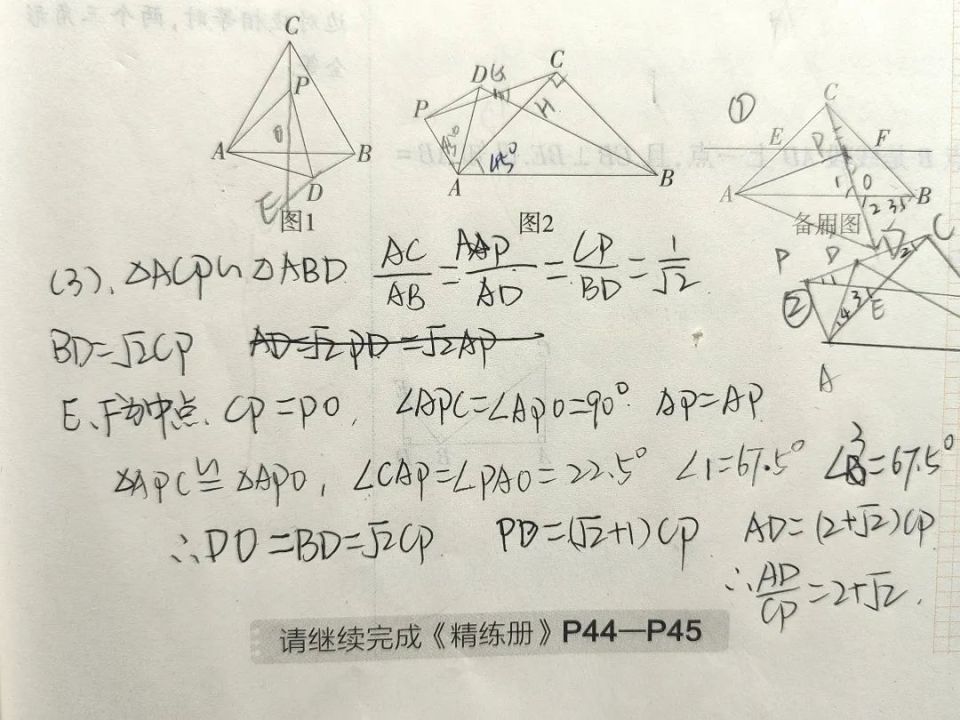 C
P
A
B
D
E
图1
C
D
P
H
45°
A
B
图2
①
C
E
P
F
1
O
A
B
2
3.5
备用图
C
P
D
②
1
2
3
4
E
A
(3)、△ACP∽△ABD AC/AB=AP/AD=CP/BD=1/√2
BD=√2CP AD=√2PD=√2AP
E、F为中点、CP=PO, ∠APC=∠APO=90° AP=AP
△APC≌△APO, ∠CAP=∠PAO=22.5° ∠1=67.5° ∠3=67.5°
∴DO=BD=√2CP PD=(√2+1)CP AD=(2+√2)CP
∴AD/CP=2+√2.
请继续完成《精练册》P44—P45